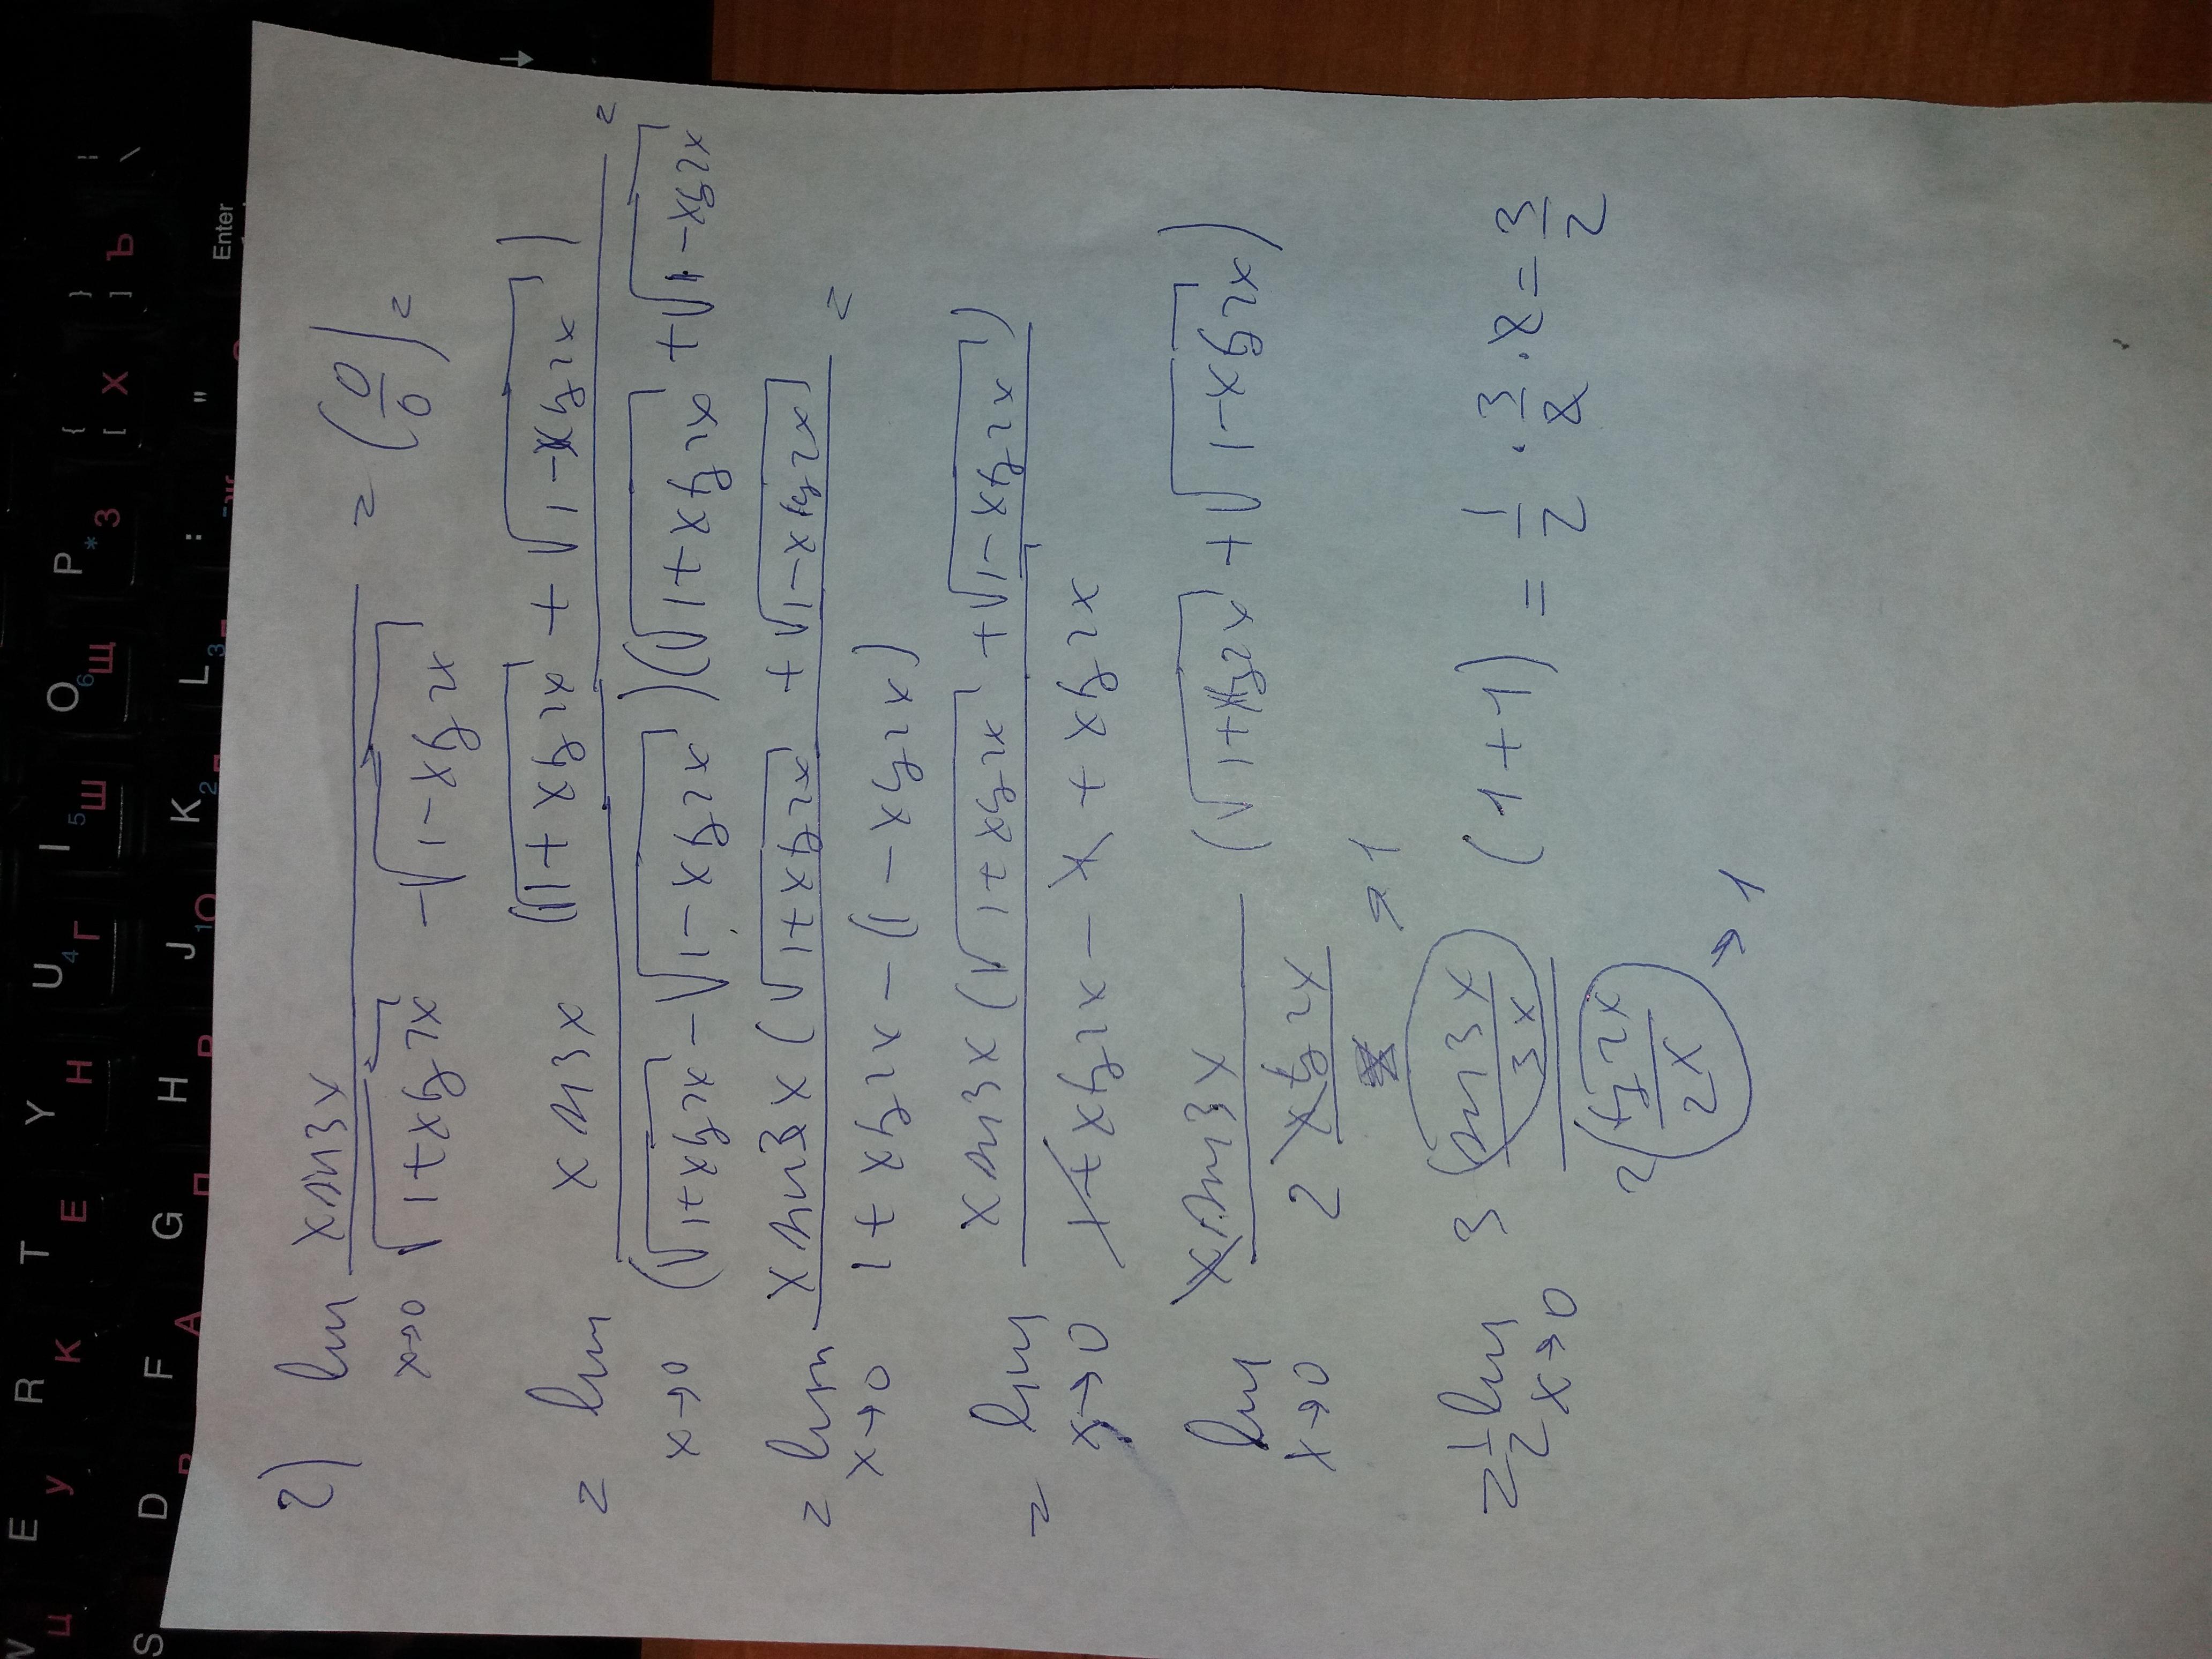 2) lim x→0 x sin3x / (√(1+x tg2x) - √(1-x tg2x)) = (0/0) =
= lim x→0 x sin3x (√(1+x tg2x) + √(1-x tg2x)) / (√(1+x tg2x) - √(1-x tg2x))(√(1+x tg2x) + √(1-x tg2x)) =
= lim x→0 x sin3x (√(1+x tg2x) + √(1-x tg2x)) / 1+x tg2x - (1-x tg2x) =
= lim x→0 x sin3x (√(1+x tg2x) + √(1-x tg2x)) / 1+x tg2x - 1 + x tg2x
lim x→0 x sin3x / 2 x tg2x (√(1+x tg2x) + √(1-x tg2x))
= 1/2 lim x→0 3 (sin3x / 3x) → 1 / 2 (tg2x / 2x) → 1 (1+1) = 1/2 · 3/2 · 2 = 3/2
W E R T Y U I O P { [ } ] | \
Ц У К Е Н Г Ш Щ З Х Ъ
4 5 6 *
S D F G H J K L : " Enter
А П Р
1 2 3